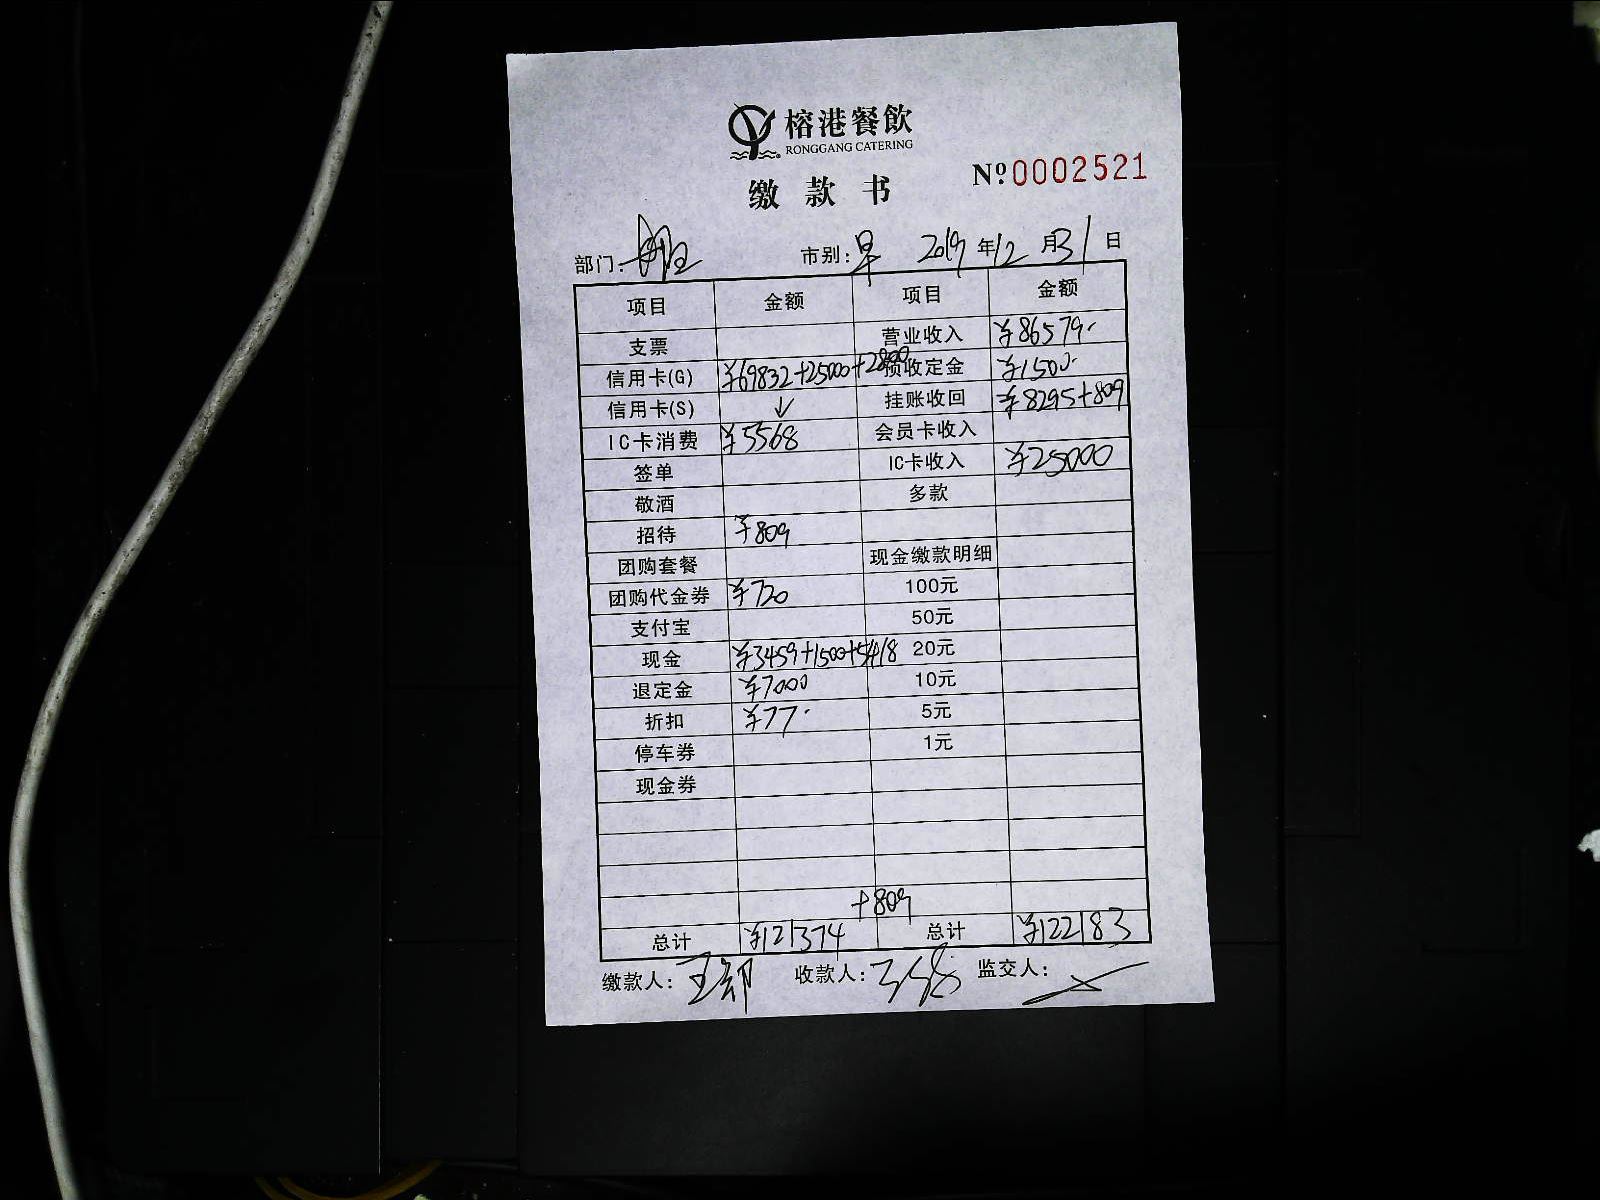 榕港餐飲
RONGGANG CATERING
Nº 0002521
缴款书
部门： 市别：早 2019年12月31日
项目 金额 项目 金额
支票 营业收入 ¥86579.
信用卡(G) ¥69832+25000+2800 预收定金 ¥1500.
信用卡(S) ↓ 挂账收回 ¥8295+809
IC卡消费 ¥5568 会员卡收入
签单 IC卡收入 ¥25000
敬酒 多款
招待 ¥809
团购套餐 现金缴款明细
团购代金券 ¥720 100元
支付宝 50元
现金 ¥3459+1500+5418 20元
退定金 ¥7000 10元
折扣 ¥77. 5元
停车券 1元
现金券
+809
总计 ¥121374 总计 ¥122183
缴款人： 收款人： 监交人：